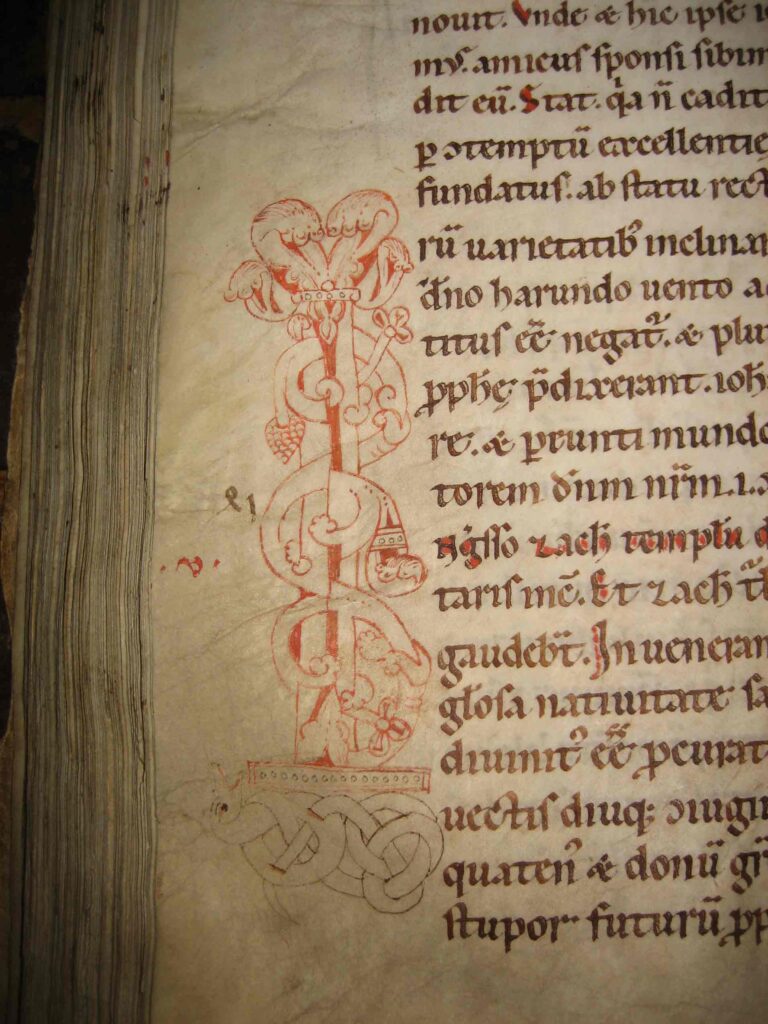 nouit. Vnde & hic ipse i
mꝰ. amicus sponsi sibim
dit eũ. Stat. q̇a ñ cadit
ꝑ ↄtemptũ excellentię
fundatus. ab statu rect
rũ uarietatibꝰ inclina
dño harundo uento a
titus eẽ negat᷑. & plu
ꝓph̃ę p̃dixerant. ioh̃
re. & ꝑeunti mundo
torem dñm nr̃m. i. a
zach templũ d
taris inc̃. Et zach
gaudeb̃t. In ueneran
gl̃osa natiuitate sa
diuinitꝰ eẽ ꝓcurat
uectis diuq; ↄiugi
quatenꝰ & donũ gr̃
stupor futurũ ꝓp